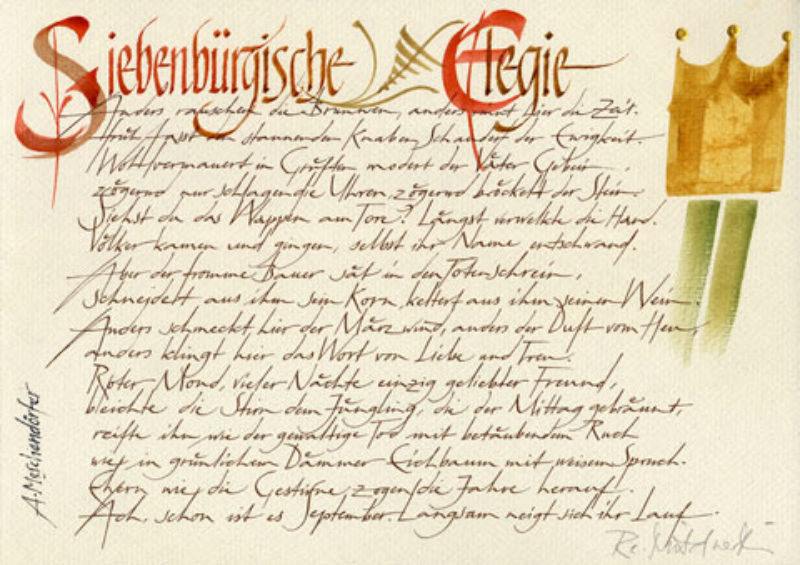 Siebenbürgische Elegie
Anders rauschen die Brunnen, anders rinnt hier die Zeit.
Früh fasst den staunenden Knaben Schauder der Ewigkeit.
Wohlvermauert in Grüften modert der Väter Gebein,
zögernd nur schlagen die Uhren, zögernd bröckelt der Stein.
Siehst du das Wappen am Tore? Längst verwelkte die Hand.
Völker kamen und gingen, selbst ihr Name entschwand.
Aber der fromme Bauer sät in den Totenschrein,
schneidet aus ihm sein Korn, keltert aus ihm seinen Wein.
Anders schmeckt hier der Märzwind, anders der Duft vom Heu,
anders klingt hier das Wort von Liebe und Treu.
Roter Mond, vieler Nächte einzig geliebter Freund,
bleichte die Stirn dem Jüngling, die der Mittag gebräunt,
reifte ihn wie der gewaltige Tod mit betäubendem Ruch
wie in grünlichem Dämmer Eichbaum mit weisem Spruch.
Ehern wie die Gestirne, zogen die Jahre herauf.
Ach, schon ist es September. Langsam neigt sich ihr Lauf.
A. Meschendörfer